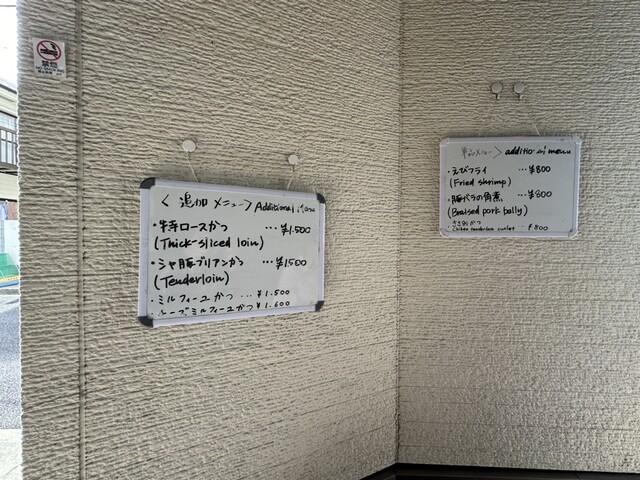 禁煙
< 追加 メニュー > Additional Menu
・特ロースかつ ・・・ ¥1.500
(Thick-sliced loin)
・シャ豚ブリアンかつ ・・・ ¥1.500
(Tenderloin)
・ミルフィーユかつ ・・・ ¥1.500
ミルフィーユかつ ¥1.600
メニュー > additional menu
・えびフライ ・・・ ¥800
(Fried shrimp)
・豚バラの角煮 ・・・ ¥800
(Braised pork bally)
ささみかつ
Chicken tenderloin cutlet ¥800